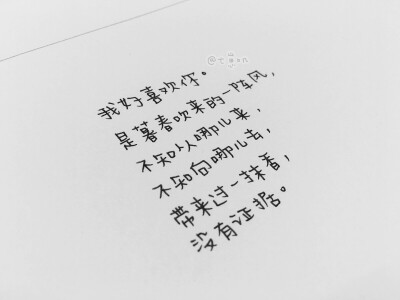 我好喜欢你。
是暮春吹来的一阵风，
不知从哪儿来，
不知向哪儿去，
带来过一抹香，
没有证据。